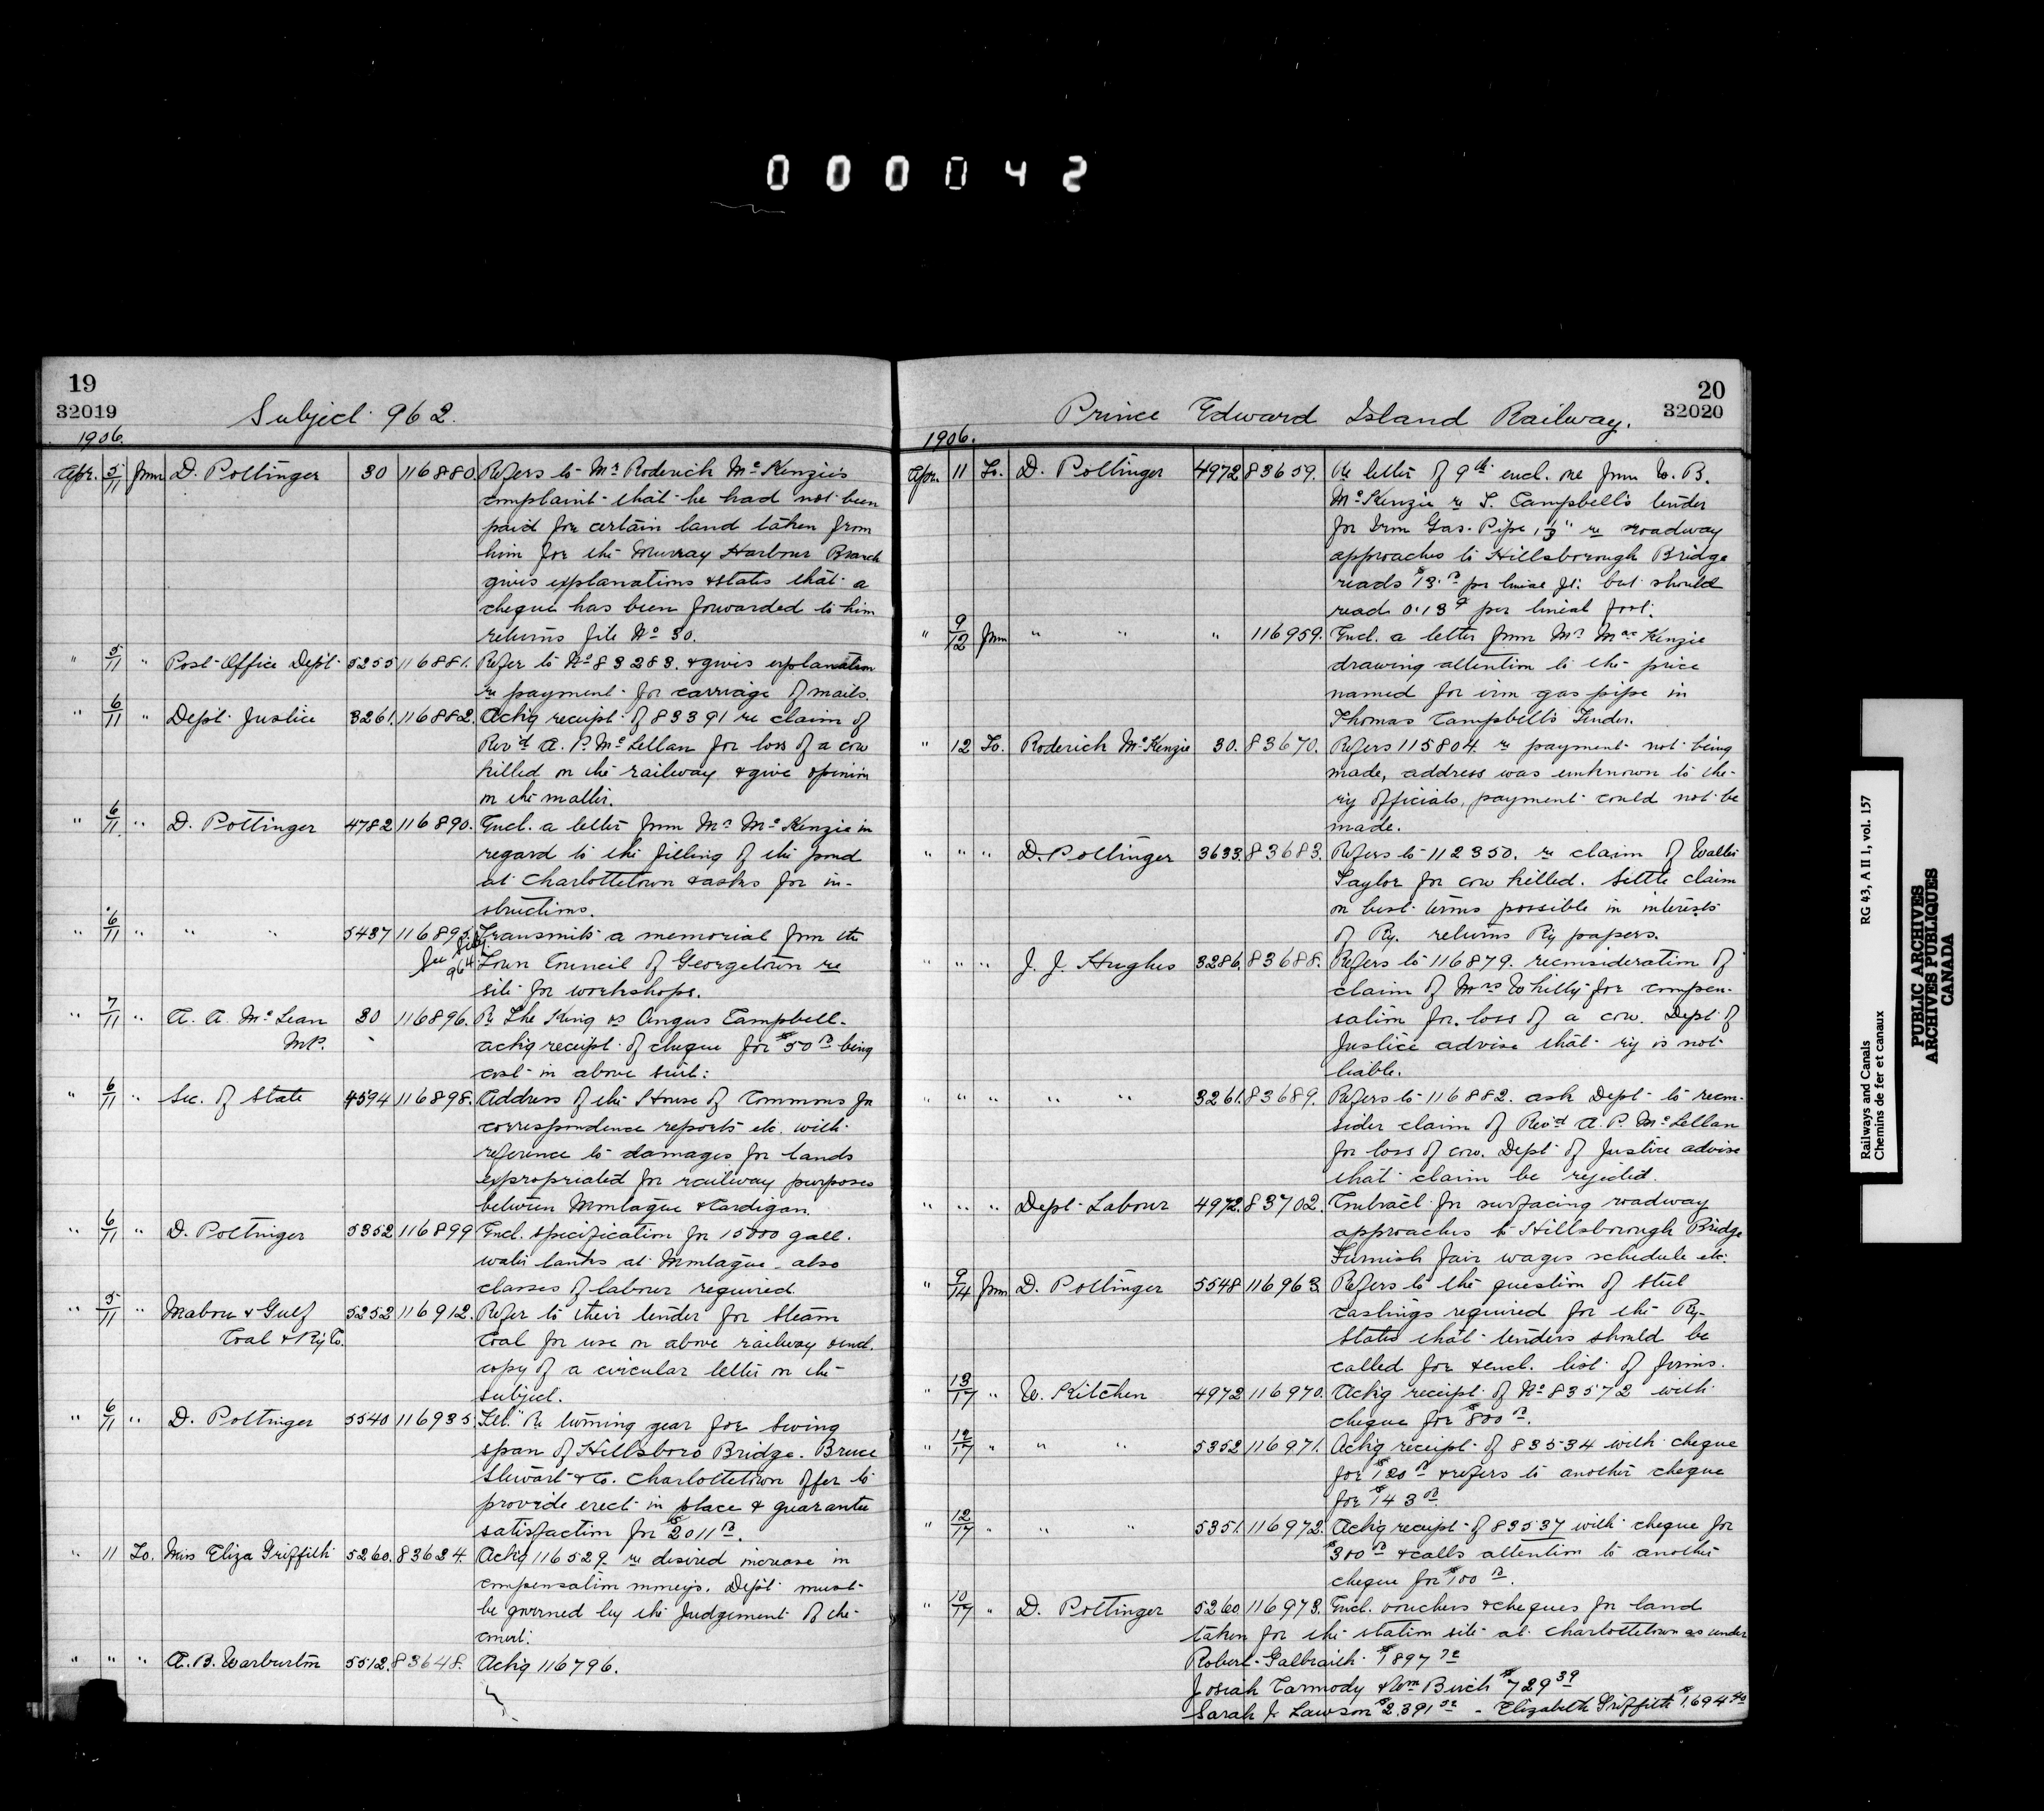 000042
19
32019
Subject 962.
1906.
Apr. 5/11 from D. Pottinger 30 116880. Refers to Mr Roderick McKenzie's
complaint that he had not been
paid for certain land taken from
him for the Murray Harbour Branch
gives explanations & states that a
cheque has been forwarded to him
returns file No 30.
" 5/11 " Post Office Dept. 5255 116881. Refer to No 83283. & gives explanation
re payment for carriage of mails.
" 6/11 " Dept. Justice 3261. 116882. Ackg receipt of 83391 re claim of
Rev'd A. P. McLellan for loss of a cow
killed on the railway & give opinion
on the matter.
" 6/11 " D. Pottinger 4782 116890. Encl. a letter from Mr McKenzie in
regard to the filling of the pond
at Charlottetown & asks for in-
structions.
" 6/11 " " " 5437 116895. Transmits a memorial from the
See Subj. 964 Town Council of Georgetown re
site for workshops.
" 7/11 " A. A. McLean 30 116896. Re The King vs Angus Campbell.
M.P. ackg receipt of cheque for $50 00 being
cost in above suit:
" 6/11 " Sec. of State 4594 116898. Address of the House of Commons for
correspondence reports etc. with
reference to damages for lands
expropriated for railway purposes
between Montague & Cardigan.
" 6/11 " D. Pottinger 5352 116899 Encl. specification for 15000 gall.
water tanks at Montague. also
classes of labour required.
" 5/11 " Mabou & Gulf 5252 116912. Refer to their tender for steam
Coal & Ry Co. Coal for use on above railway & encl.
copy of a circular letter on the
subject.
" 6/11 " D. Pottinger 5540 116935. Re turning gear for swing
span of Hillsboro Bridge. Bruce
Stewart & Co. Charlottetown offer to
provide erect in place & guarantee
satisfaction for $2011 00.
" 11 To. Miss Eliza Griffith 5260. 83624. Ackg 116529. re desired increase in
compensation moneys. Dept. must
be governed by the Judgement of the
court.
" " " A. B. Warburton 5512. 83648. Ackg 116796.
20
32020
Prince Edward Island Railway.
1906.
Apr. 11 To. D. Pottinger 4972 83659. Re letter of 9th encl. one from W. B.
McKenzie re T. Campbell's tender
for Iron Gas Pipe re roadway
approaches to Hillsborough Bridge
reads $13. 00 per lineal ft: but should
read 0.13 per lineal foot.
" 9/12 from " " " 116959. Encl. a letter from Mr MacKenzie
drawing attention to the price
named for iron gas pipe in
Thomas Campbell's Tender.
" 12 To. Roderick McKenzie 30. 83670. Refers 115804. re payment not being
made, address was unknown to the
ry officials, payment could not be
made.
" " " D. Pottinger 3633. 83683. Refers to 112350. re claim of Walter
Taylor for cow killed. Settle claim
on best terms possible in interests
of Ry. returns Ry papers.
" " " J. J. Hughes 3286. 83688. Refers to 116879. reconsideration of
claim of Mrs Whitty for compen-
sation for loss of a cow. Dept of
Justice advise that ry is not
liable.
" " " " " 3261. 83689. Refers to 116882. ask Dept to recon-
sider claim of Rev'd A. P. McLellan
for loss of cow. Dept of Justice advise
that claim be rejected.
" " " Dept. Labour 4972. 83702. Contract for surfacing roadway
approaches to Hillsborough Bridge
Furnish fair wages schedule etc.
" 9/14 from D. Pottinger 5548 116963. Refers to the question of steel
castings required for the Ry.
States that tenders should be
called for & encl. list of firms.
" 13/17 " W. Kitchen 4972 116970. Ackg receipt of No 83572 with
cheque for $800 00.
" 12/17 " " " 5352 116971. Ackg receipt of 83534 with cheque
for $120 00 & refers to another cheque
for $143 00
" 12/17 " " " 5351. 116972. Ackg receipt of 83537 with cheque for
$300 00 & calls attention to another
cheque for $100 00.
" 10/17 " D. Pottinger 5260 116973. Encl. vouchers & cheques for land
taken for the station site at Charlottetown as under
Robert Galbraith $1897 72
Josiah Carmody & Wm Birch $729 39
Sarah J. Lawson $2.391 - Elizabeth Griffith $1.694 40
Railways and Canals RG 43, A II 1, vol. 157
Chemins de fer et canaux
PUBLIC ARCHIVES
ARCHIVES PUBLIQUES
CANADA